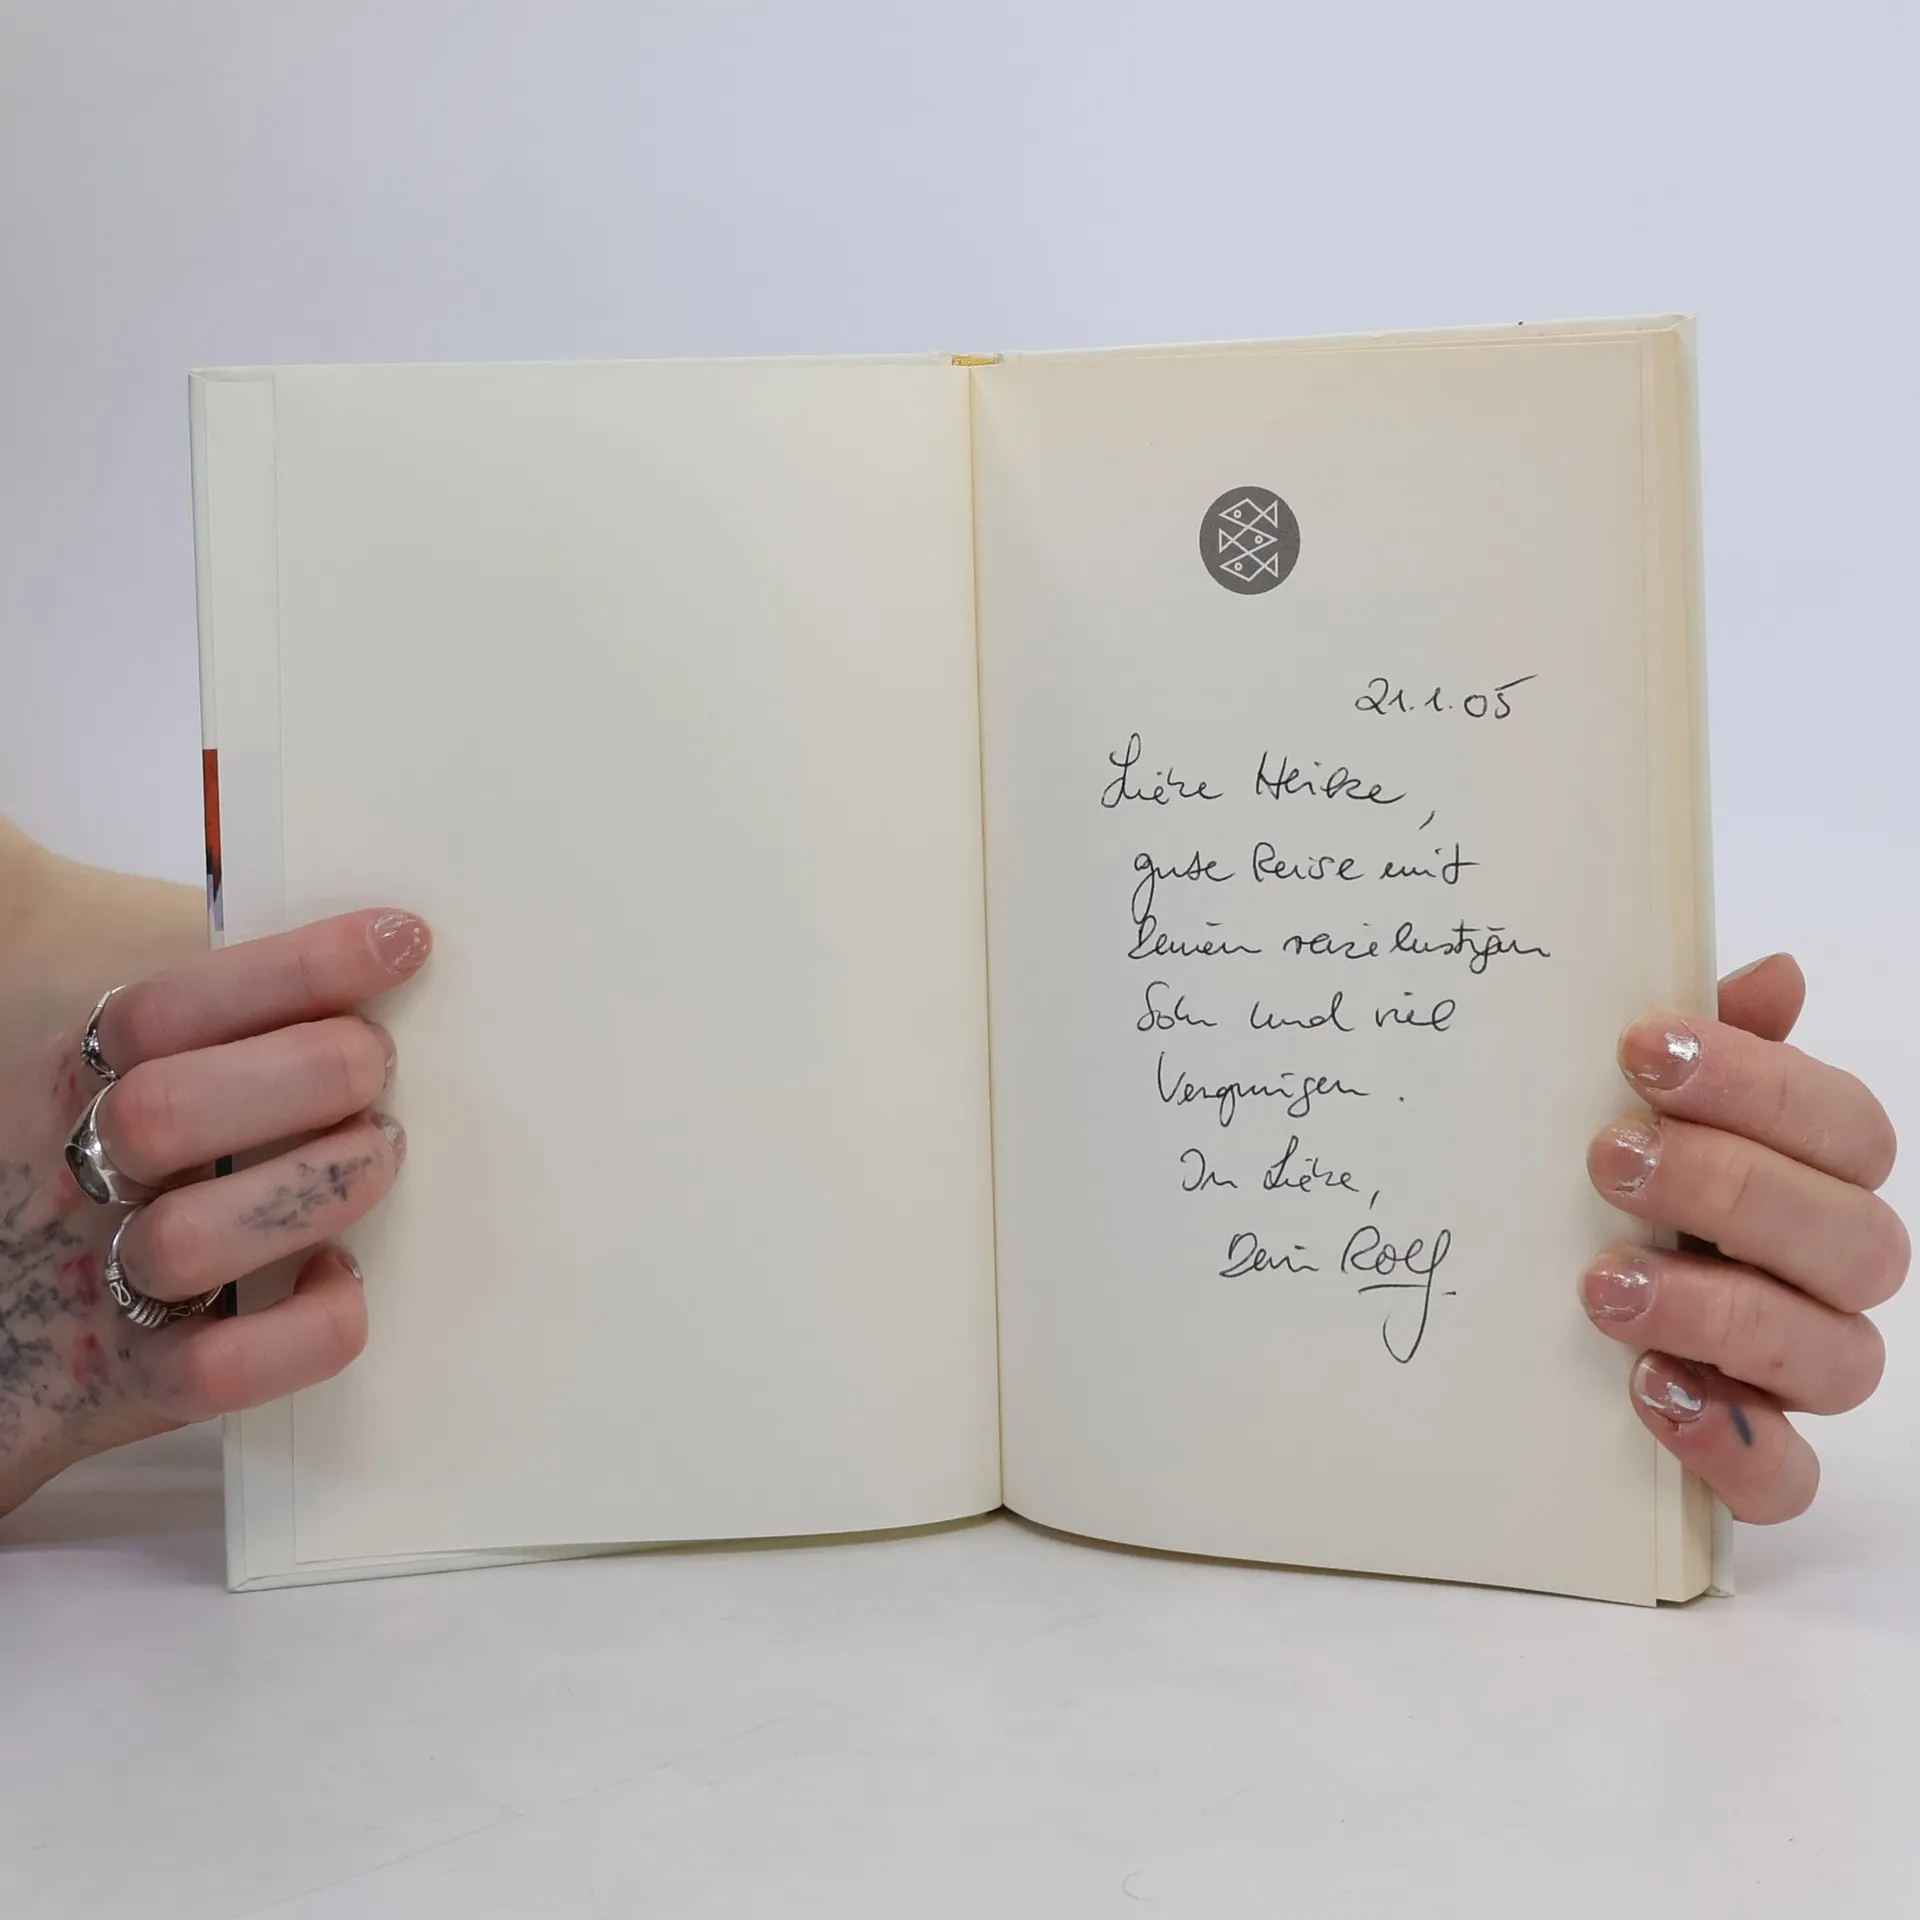 21.1.05
Liebe Heike,
gute Reise mit
Deinem reiselustigen
Sohn und viel
Vergnügen.
In Liebe,
Dein Rolf